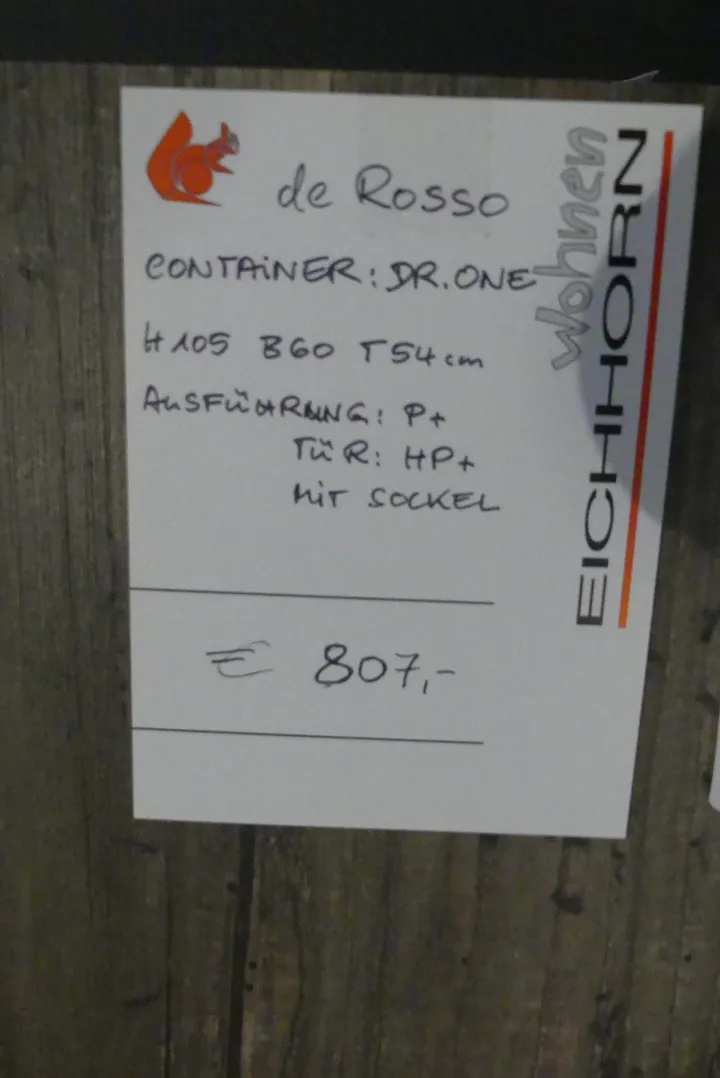 de Rosso
CONTAINER: DR.ONE
H 105 B60 T54 cm
AUSFÜHRUNG: P+
TÜR: HP+
MIT SOCKEL
€ 807,-
wohnen
EICHHORN